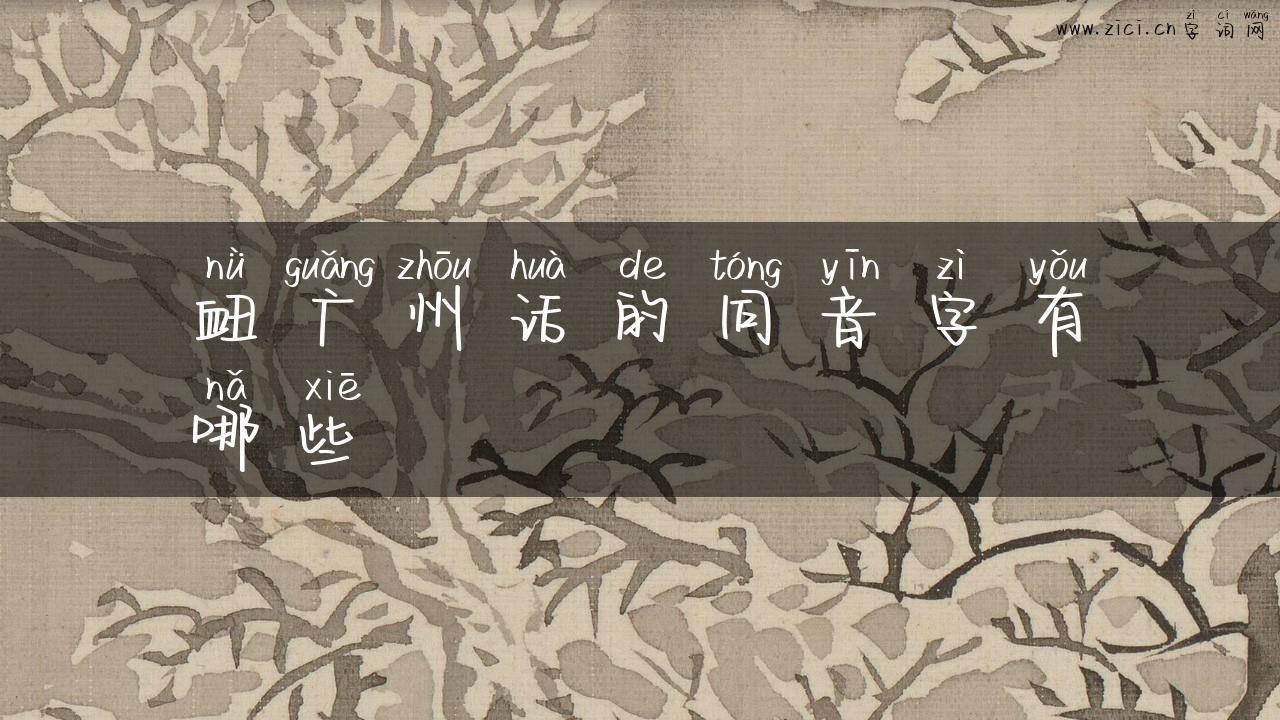 zì cí wǎng
www.zici.cn 字 词 网
nǜ guǎng zhōu huà de tóng yīn zì yǒu
衄 广 州 话 的 同 音 字 有
nǎ xiē
哪 些